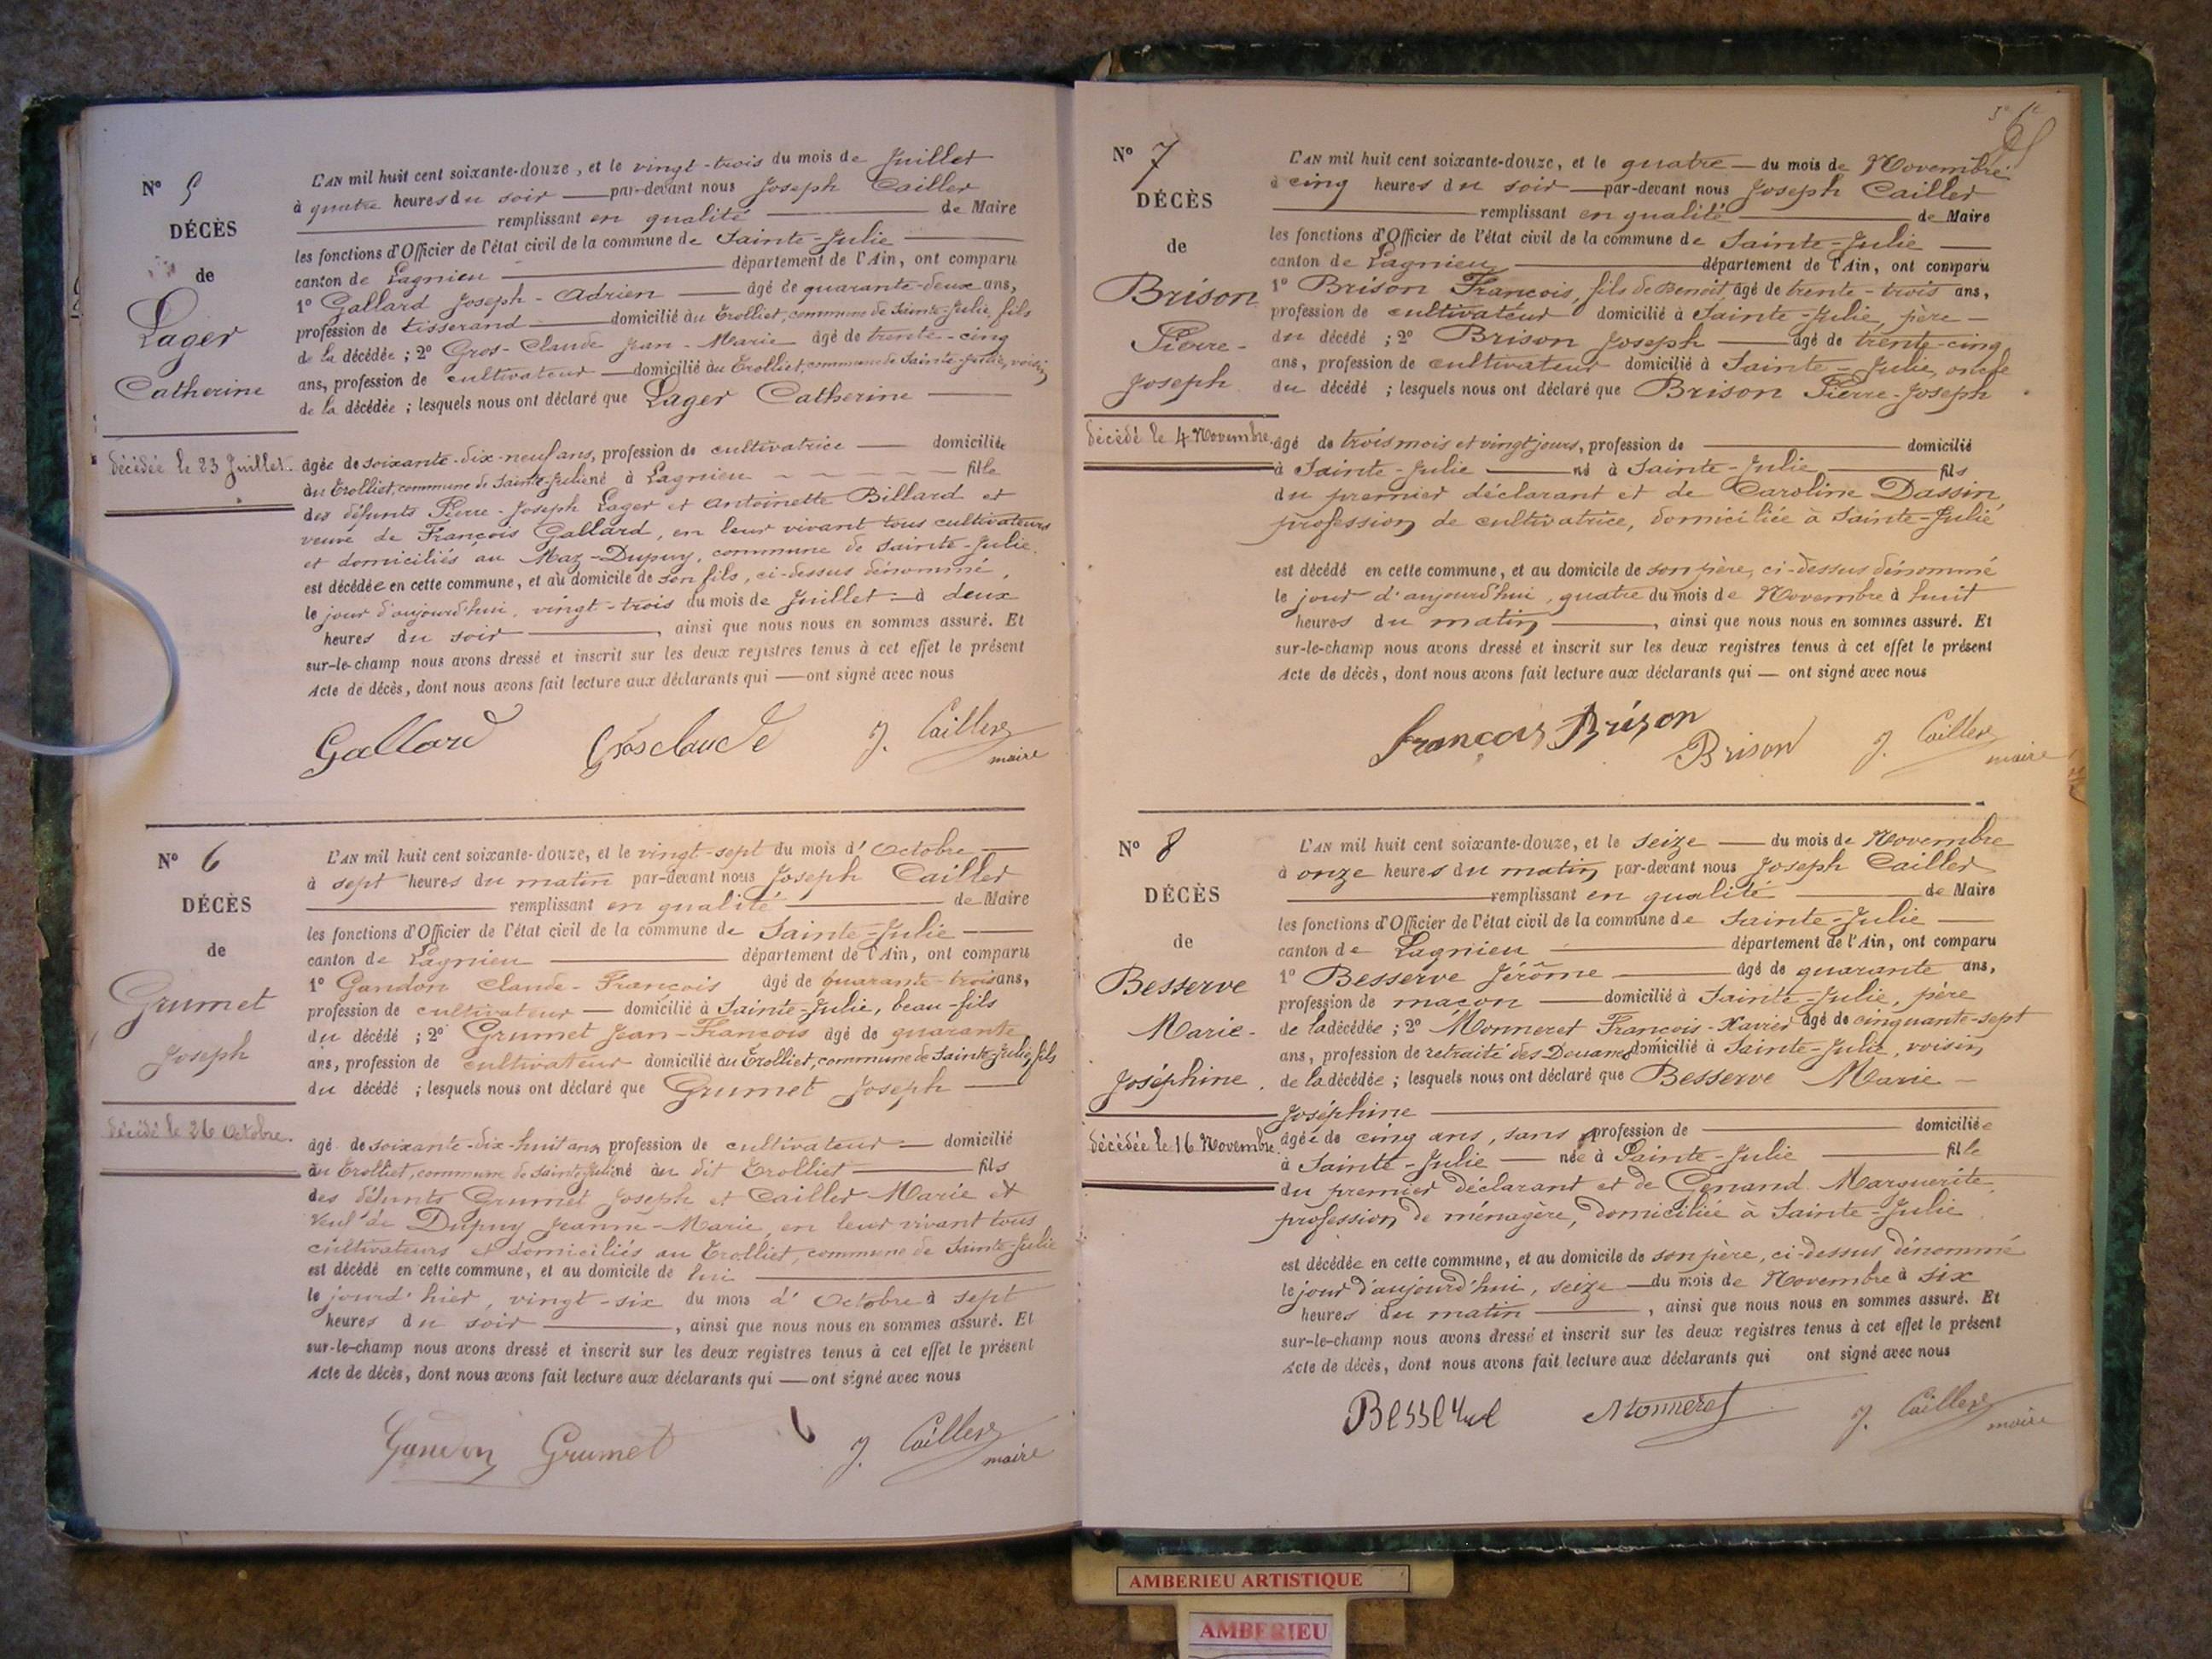 N° 5
DÉCÈS
de
Lager
Catherine
décédée le 23 Juillet.
L'AN mil huit cent soixante-douze, et le vingt-trois du mois de Juillet
à quatre heures du soir — par-devant nous Joseph Cailler
remplissant en qualité de Maire
les fonctions d'Officier de l'état civil de la commune de Sainte-Julie
canton de Lagnieu département de l'Ain, ont comparu
1° Gallard Joseph-Adrien — âgé de quarante-deux ans,
profession de tisserand — domicilié au Trolliet, commune de Sainte-Julie, fils
de la décédée ; 2° Gros-Claude Jean-Marie âgé de trente-cinq
ans, profession de cultivateur — domicilié au Trolliet, commune de Sainte-Julie, voisin
de la décédée ; lesquels nous ont déclaré que Lager Catherine —
âgée de soixante-dix-neuf ans, profession de cultivatrice — domiciliée
au Trolliet, commune de Sainte-Julie né à Lagnieu fille
des défunts Pierre-Joseph Lager et Antoinette Billard et
veuve de François Gallard, en leur vivant tous cultivateurs
et domiciliés au Maz-Dupuy, commune de Sainte-Julie.
est décédée en cette commune, et au domicile de son fils, ci-dessus dénommé,
le jour d'aujourd'hui, vingt-trois du mois de Juillet à deux
heures du soir —, ainsi que nous nous en sommes assuré. Et
sur-le-champ nous avons dressé et inscrit sur les deux registres tenus à cet effet le présent
Acte de décès, dont nous avons fait lecture aux déclarants qui — ont signé avec nous
Gallard Grosclaude J. Cailler
maire
N° 6
DÉCÈS
de
Grumet
Joseph
décédé le 26 Octobre.
L'AN mil huit cent soixante-douze, et le vingt-sept du mois d'Octobre —
à sept heures du matin par-devant nous Joseph Cailler
remplissant en qualité de Maire
les fonctions d'Officier de l'état civil de la commune de Sainte-Julie —
canton de Lagnieu département de l'Ain, ont comparu
1° Gandon Claude-François âgé de quarante-trois ans,
profession de cultivateur — domicilié à Sainte-Julie, beau-fils
du décédé ; 2° Grumet Jean-François âgé de quarante
ans, profession de cultivateur domicilié au Trolliet, commune de Sainte-Julie, fils
du décédé ; lesquels nous ont déclaré que Grumet Joseph —
âgé de soixante-dix-huit ans, profession de cultivateur — domicilié
au Trolliet, commune de Sainte-Julie né au dit Trolliet — fils
des défunts Grumet Joseph et Cailler Marie et
veuf de Dupuy Jeanne-Marie, en leur vivant tous
cultivateurs et domiciliés au Trolliet, commune de Sainte-Julie
est décédé en cette commune, et au domicile de lui —
le jour d'hier, vingt-six du mois d'Octobre à sept
heures du soir —, ainsi que nous nous en sommes assuré. Et
sur-le-champ nous avons dressé et inscrit sur les deux registres tenus à cet effet le présent
Acte de décès, dont nous avons fait lecture aux déclarants qui — ont signé avec nous
Gandon Grumet J. Cailler
maire
N° 7
DÉCÈS
de
Brison
Pierre-
Joseph
décédé le 4 Novembre.
L'AN mil huit cent soixante-douze, et le quatre — du mois de Novembre
à cinq heures du soir — par-devant nous Joseph Cailler
remplissant en qualité de Maire
les fonctions d'Officier de l'état civil de la commune de Sainte-Julie —
canton de Lagnieu département de l'Ain, ont comparu
1° Brison François, fils de Benoit, âgé de trente-trois ans,
profession de cultivateur domicilié à Sainte-Julie, père —
du décédé ; 2° Brison Joseph — âgé de trente-cinq
ans, profession de cultivateur domicilié à Sainte-Julie, oncle
du décédé ; lesquels nous ont déclaré que Brison Pierre-Joseph
âgé de trois mois et vingt jours, profession de — domicilié
à Sainte-Julie — né à Sainte-Julie — fils
du premier déclarant et de Caroline Dassin,
profession de cultivatrice, domiciliée à Sainte-Julie
est décédé en cette commune, et au domicile de son père, ci-dessus dénommé
le jour d'aujourd'hui, quatre du mois de Novembre à huit
heures du matin —, ainsi que nous nous en sommes assuré. Et
sur-le-champ nous avons dressé et inscrit sur les deux registres tenus à cet effet le présent
Acte de décès, dont nous avons fait lecture aux déclarants qui — ont signé avec nous
françois Brison
Brison J. Cailler
maire
N° 8
DÉCÈS
de
Besserve
Marie-
Joséphine.
décédée le 16 Novembre.
L'AN mil huit cent soixante-douze, et le seize — du mois de Novembre
à onze heures du matin par-devant nous Joseph Cailler
remplissant en qualité de Maire
les fonctions d'Officier de l'état civil de la commune de Sainte-Julie —
canton de Lagnieu département de l'Ain, ont comparu
1° Besserve Jérôme — âgé de quarante ans,
profession de maçon — domicilié à Sainte-Julie, père
de la décédée ; 2° Monneret François-Xavier âgé de cinquante-sept
ans, profession de retraité des Douanes domicilié à Sainte-Julie, voisin
de la décédée ; lesquels nous ont déclaré que Besserve Marie-
Joséphine —
âgée de cinq ans, sans profession de — domiciliée
à Sainte-Julie — née à Sainte-Julie — fille
du premier déclarant et de Genand Marguerite,
profession de ménagère, domiciliée à Sainte-Julie
est décédée en cette commune, et au domicile de son père, ci-dessus dénommé
le jour d'aujourd'hui, seize — du mois de Novembre à six
heures du matin —, ainsi que nous nous en sommes assuré. Et
sur-le-champ nous avons dressé et inscrit sur les deux registres tenus à cet effet le présent
Acte de décès, dont nous avons fait lecture aux déclarants qui ont signé avec nous
Besserve Monneret J. Cailler
maire
AMBERIEU ARTISTIQUE
AMBERIEU